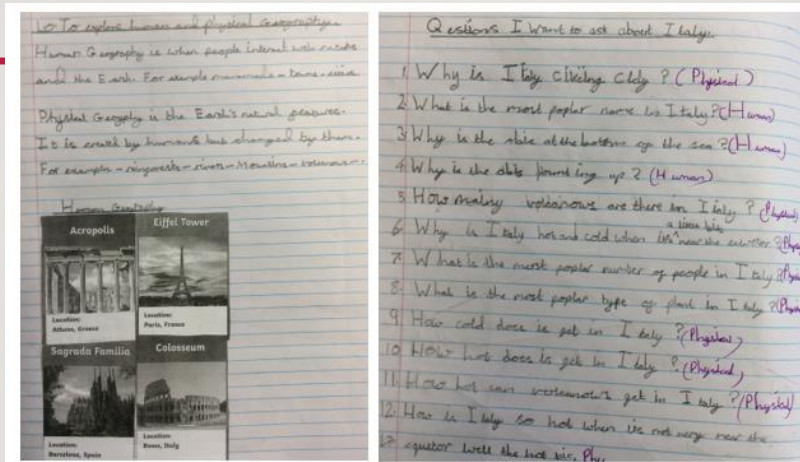 LO To explore human and physical Geography.
Human Geography is when people interact with nature
and the Earth. For example manmade - towns - cities.
Physical Geography is the Earth's natural features.
It is by humans but changed by them.
For example - - rivers - -
Human Geography
Acropolis
Location:
Athens, Greece
Eiffel Tower
Location:
Paris, France
Sagrada Familia
Location:
Barcelona, Spain
Colosseum
Location:
Rome, Italy
Questions I want to ask about Italy.
1 Why is Italy ? (Physical)
2 What is the most poplar name in Italy? (Human)
3 Why is the at the bottom of the sea? (Human)
4 Why is the up? (Human)
5 How many are there in Italy? (Physical)
6 Why is Italy hot and cold when near the
7 What is the most poplar number of people in Italy?
8 What is the most poplar type of plant in Italy?
9 How cold does is get in Italy? (Physical)
10 How hot does is get in Italy? (Physical)
11 How hot can get in Italy? (Physical)
12 How is Italy so hot when its not very near the
equator well the hot